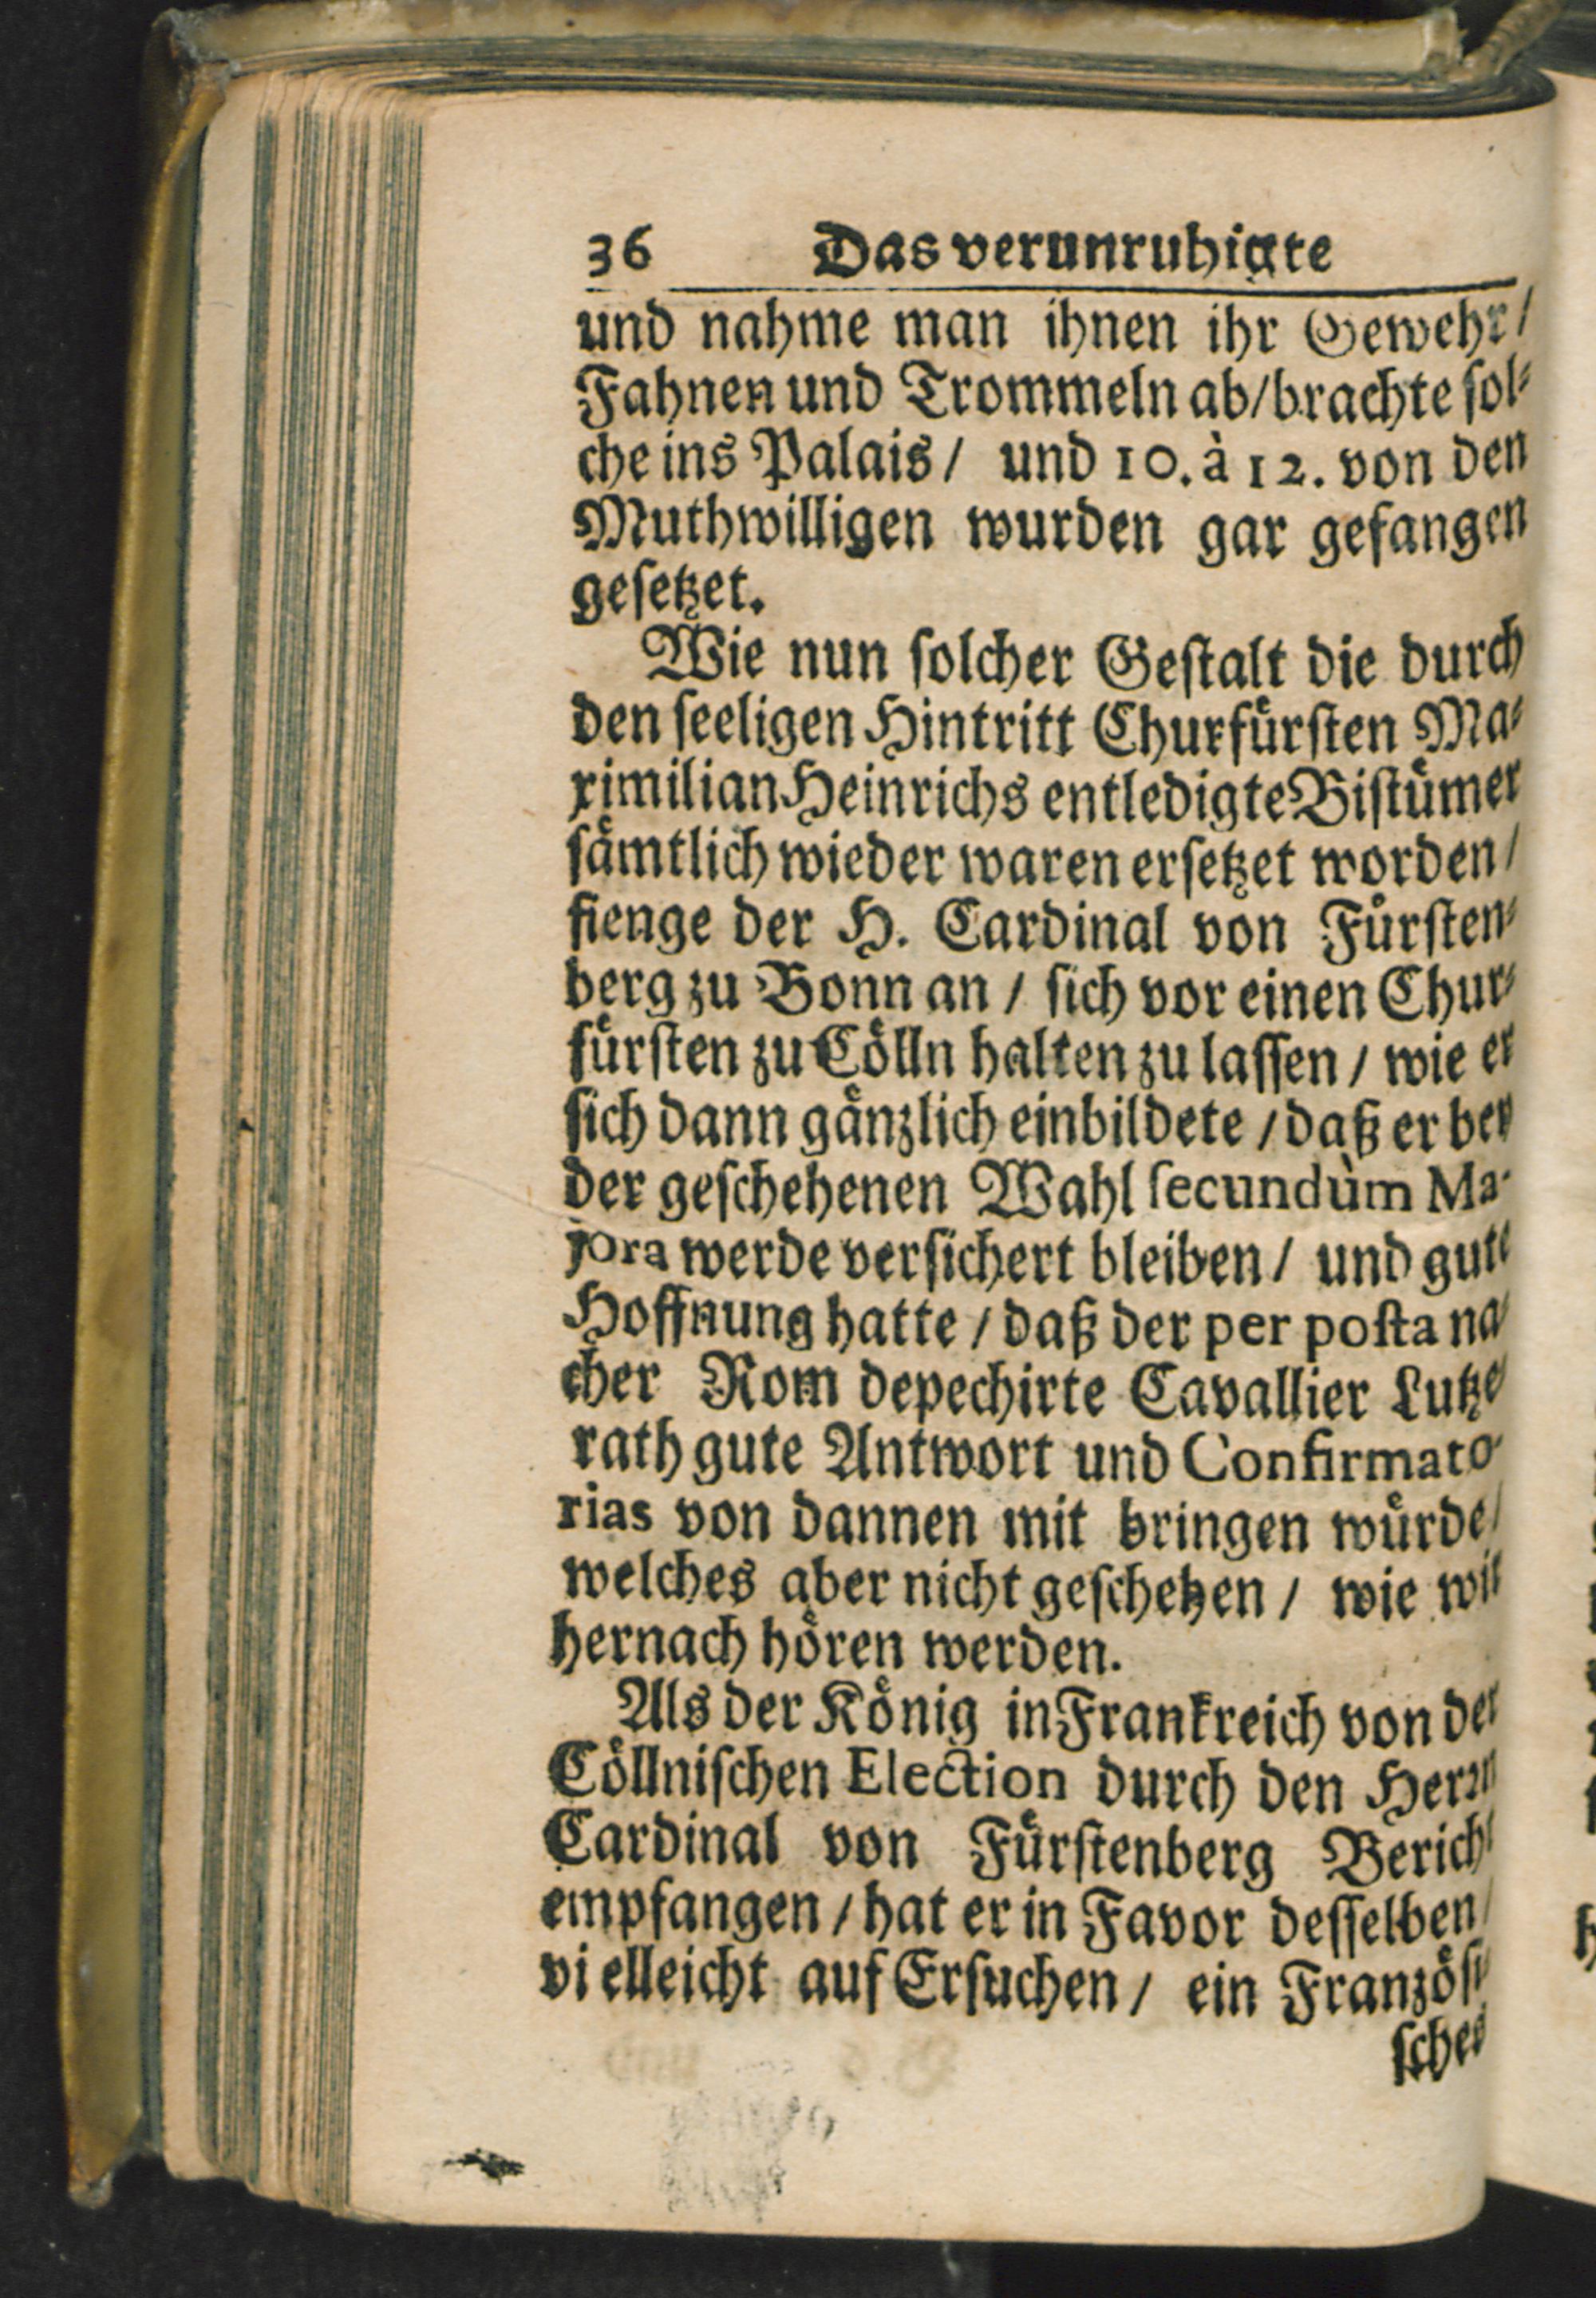 36 Das verunruhigte
und nahme man ihnen ihr Gewehr/
Fahnen und Trommeln ab/brachte sol⸗
che ins Palais/ und 10. à 12. von den
Muthwilligen wurden gar gefangen
gesetzet.
Wie nun solcher Gestalt die durch
den seeligen Hintritt Churfürsten Ma⸗
ximilian Heinrichs entledigte Bistümer
sämtlich wieder waren ersetzet worden/
fienge der H. Cardinal von Fürsten⸗
berg zu Bonn an / sich vor einen Chur⸗
fürsten zu Cölln halten zu lassen / wie er
sich dann gänzlich einbildete / daß er bey
der geschehenen Wahl secundùm Ma-
jora werde versichert bleiben / und gute
Hoffnung hatte / daß der per posta na⸗
cher Rom depechirte Cavallier Lutze⸗
rath gute Antwort und Confirmato-
rias von dannen mit bringen würde/
welches aber nicht geschehen / wie wir
hernach hören werden.
Als der König in Frankreich von der
Cöllnischen Election durch den Herrn
Cardinal von Fürstenberg Bericht
empfangen / hat er in Favor desselben/
vielleicht auf Ersuchen / ein Französi⸗
sches